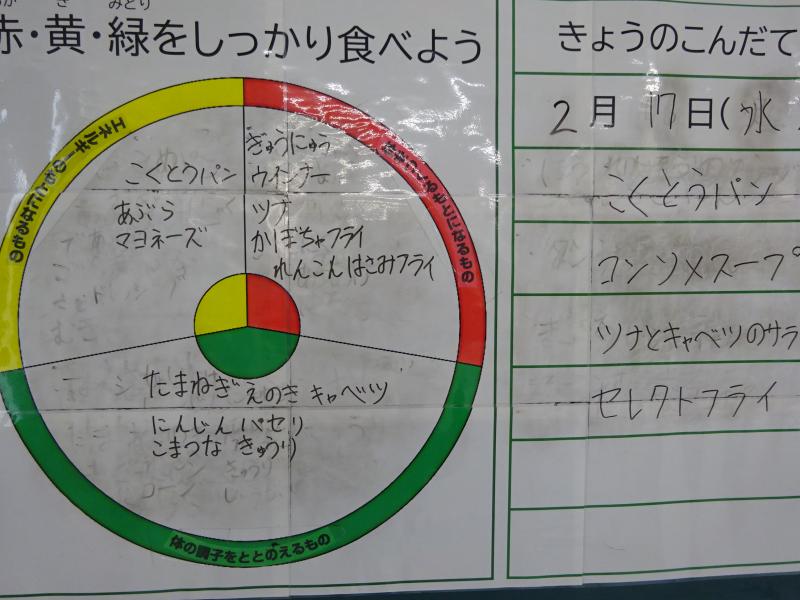 あか き みどり
赤・黄・緑をしっかり食べよう
エネルギーのもとになるもの
こくとうパン
あぶら
マヨネーズ
ぎゅうにゅう
ウインナー
ツナ
かぼちゃフライ
れんこんはさみフライ
もとになるもの
たまねぎ えのき キャベツ
にんじん パセリ
こまつな きゅうり
体の調子をととのえるもの
きょうのこんだて
2月 17日(水
こくとうパン
コンソメスープ
ツナとキャベツのサラ
セレクトフライ